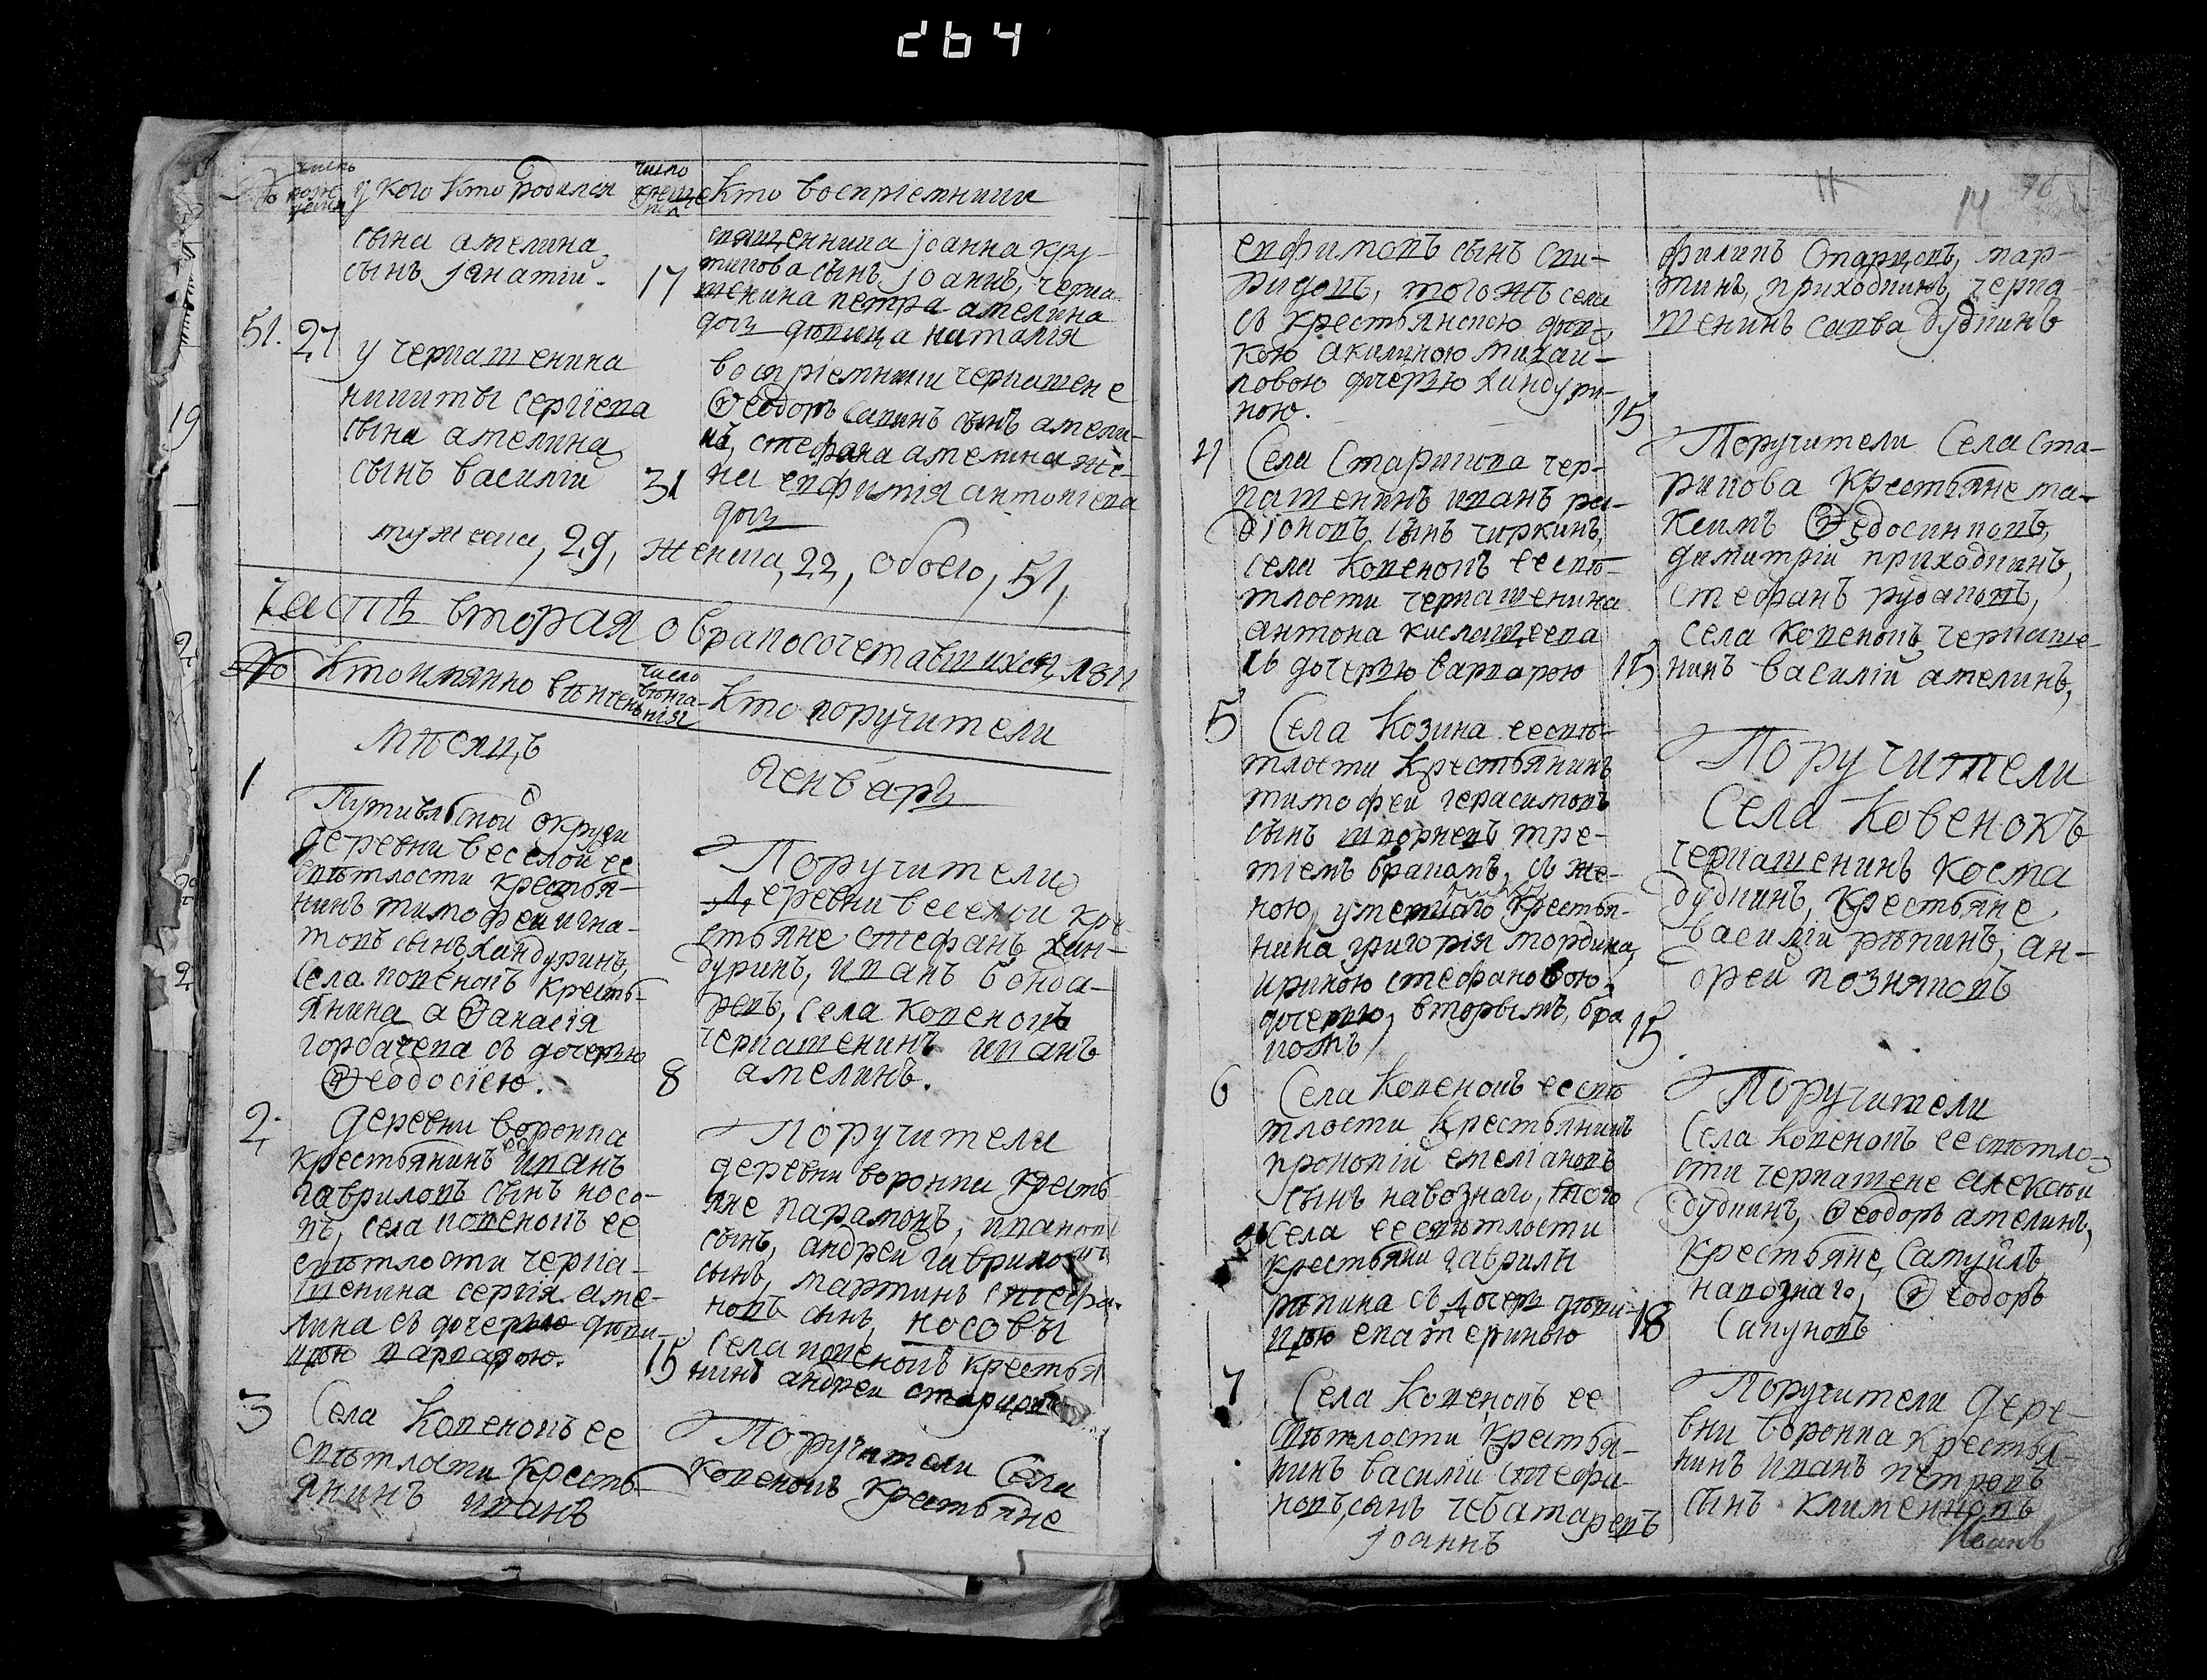 264
число рождения
у кого кто родился
число крещения
кто восприемники
сына амелина
сынъ игнатій.
17
священника іоанна кру-
тикова сынъ іоаннъ, черка-
шенина петра амелина
дочь девица наталія
51. 27
у черкашенина
никиты сергіева
сына амелина
сынъ василій
31
восприемники черкашене
Ѳеодоръ савинъ сынъ амели-
нъ, стефана амелина же-
на евфимія антоніева
дочь
мужеска, 29, женска, 22, обоего, 51,
часть вторая о бракосочетавшихся
№ кто имянно венчаны
число венчания
кто поручители
мѣсяцъ генварь
1
Путивлской округи
деревни веселой ее
светлости крестья-
нинъ тимофей игна-
товъ сынъ хандуринъ,
села ковенокъ кресть-
янина аѲанасія
горбачева съ дочерью
Ѳеодосіею.
8
Поручители
деревни веселой кре-
стьяне стефанъ хан-
дуринъ, иванъ бонда-
ревъ, села ковенокъ
черкашенинъ иванъ
амелинъ.
2.
деревни воронка
крестьянинъ иванъ
гавриловъ сынъ носо-
въ, села ковенокъ ее
светлости черка-
шенина сергія аме-
лина съ дочерью деви-
цею варварою.
15
Поручители
деревни воронки кресть-
яне парамонъ, ивановъ
сынъ, андрей гавриловъ
сынъ, мартинъ стефа-
новъ сынъ, носовы
села ковенокъ крестья
нинъ андрей старцовъ
3
Села Ковенокъ ее
светлости кресть-
янинъ иванъ
Поручители Села
ковенокъ крестьяне
14
евфимовъ сынъ спи-
ридовъ, того жъ села
съ крестьянскою дев-
кою акилиною михаи-
ловою дочерью хандури-
ною.
15
филипъ Старцовъ, мар-
тинъ, приходкинъ, черка-
шенинъ савва дудкинъ
4
Села Старикова чер-
кашенинъ иванъ ра-
діоновъ сынъ чиркинъ,
села ковенокъ ее све-
тлости черкашенина
антона кислащеева
съ дочерью варварою
15
Поручители Села Ста-
рикова крестьяне ма-
ксимъ Ѳедосинковъ,
димитрій приходкинъ,
стефанъ рудаковъ,
села ковенокъ черкаше-
нинъ василій амелинъ,
5
Села Козина ее све-
тлости крестьянинъ
тимофей герасимовъ
сынъ шпорневъ тре-
тіемъ бракомъ, съ же-
ною умершаго крестья-
нина григорія мордина,
ириною стефановою
дочерью, вторымъ, бра
комъ
15
Поручители
Села Ковенокъ
черкашенинъ косма
дудкинъ, крестьяне
василій репинъ, ан-
дрей позняковъ
6
Села Ковенокъ ее све
тлости крестьянинъ
прокопій емельяновъ
сынъ навознаго, того
села ее светлости
крестьяни гаврилы
репина съ дочер деви-
цею екатериною
18
Поручители
Села ковенокъ ее светло-
сти черкашене алексѣй
дудкинъ, Ѳеодоръ амелинъ,
крестьяне, самуилъ
навознаго, Ѳеодоръ
Сапуновъ
7
Села Ковенокъ ее
светлости крестья-
нинъ василій стефа-
новъ сынъ чеботаревъ
іоаннъ
Поручители дере-
вни воронка крестья-
нинъ иванъ петровъ
сынъ клименковъ
Иоанъ